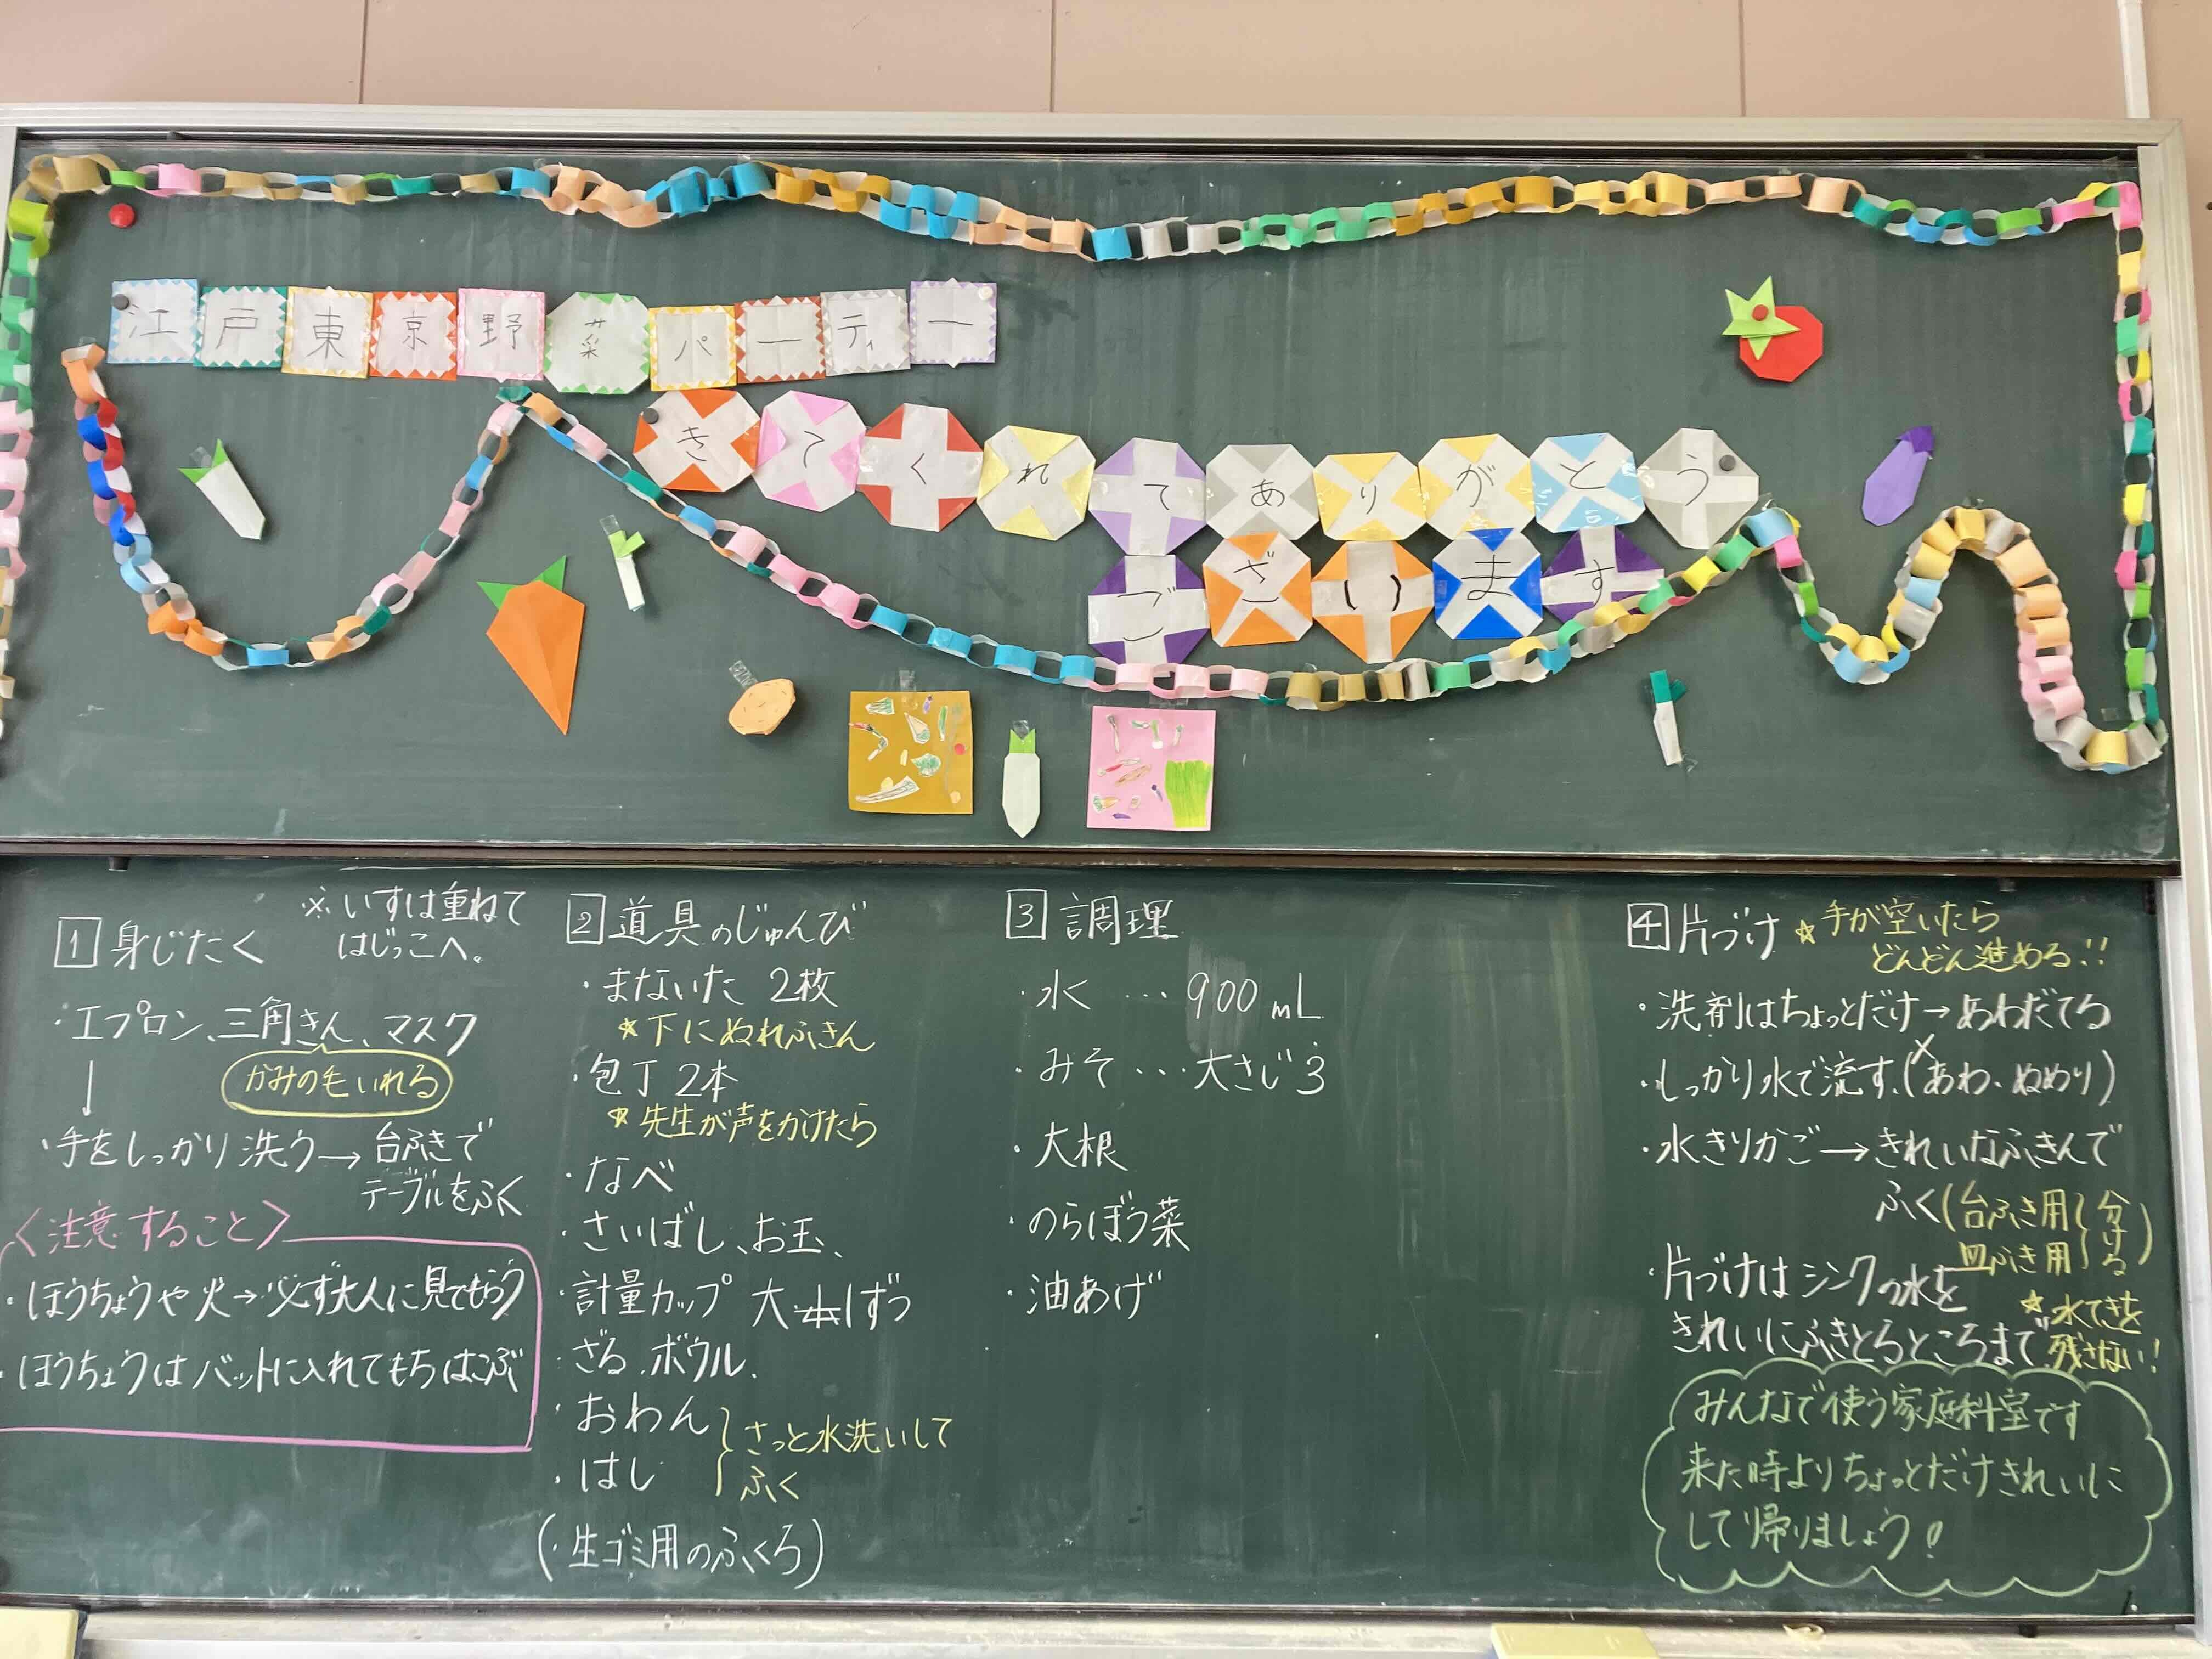 江戸東京野菜パーティー
きてくれてありがとう
ございます
1 身じたく
※いすは重ねて
はじっこへ。
・エプロン、三角きん、マスク
かみの毛いれる
↓
・手をしっかり洗う→台ふきで
テーブルをふく
<注意すること>
・ほうちょうや火→必ず大人に見てもらう
・ほうちょうはバットに入れてもちはこぶ
2 道具のじゅんび
・まないた 2枚
☆下にぬれふきん
・包丁 2本
☆先生が声をかけたら
・なべ
・さいばし、お玉、
・計量カップ 大小1ずつ
・ざる、ボウル、
・おわん
・はし
さっと水洗いして
ふく
(・生ゴミ用のふくろ)
3 調理
・水 … 900mL
・みそ … 大さじ3
・大根
・のらぼう菜
・油あげ
4 片づけ ☆手が空いたら
どんどん進める!!
・洗剤はちょっとだけ→あわだてる
・しっかり水で流す。(×あわ・ぬめり)
・水きりかご→きれいなふきんで
ふく(台ふき用 皿ふき用 分ける)
・片づけはシンクの水を
きれいにふきとるところまで
☆水てきを
残さない!
みんなで使う家庭科室です
来た時よりちょっとだけきれいに
して帰りましょう!